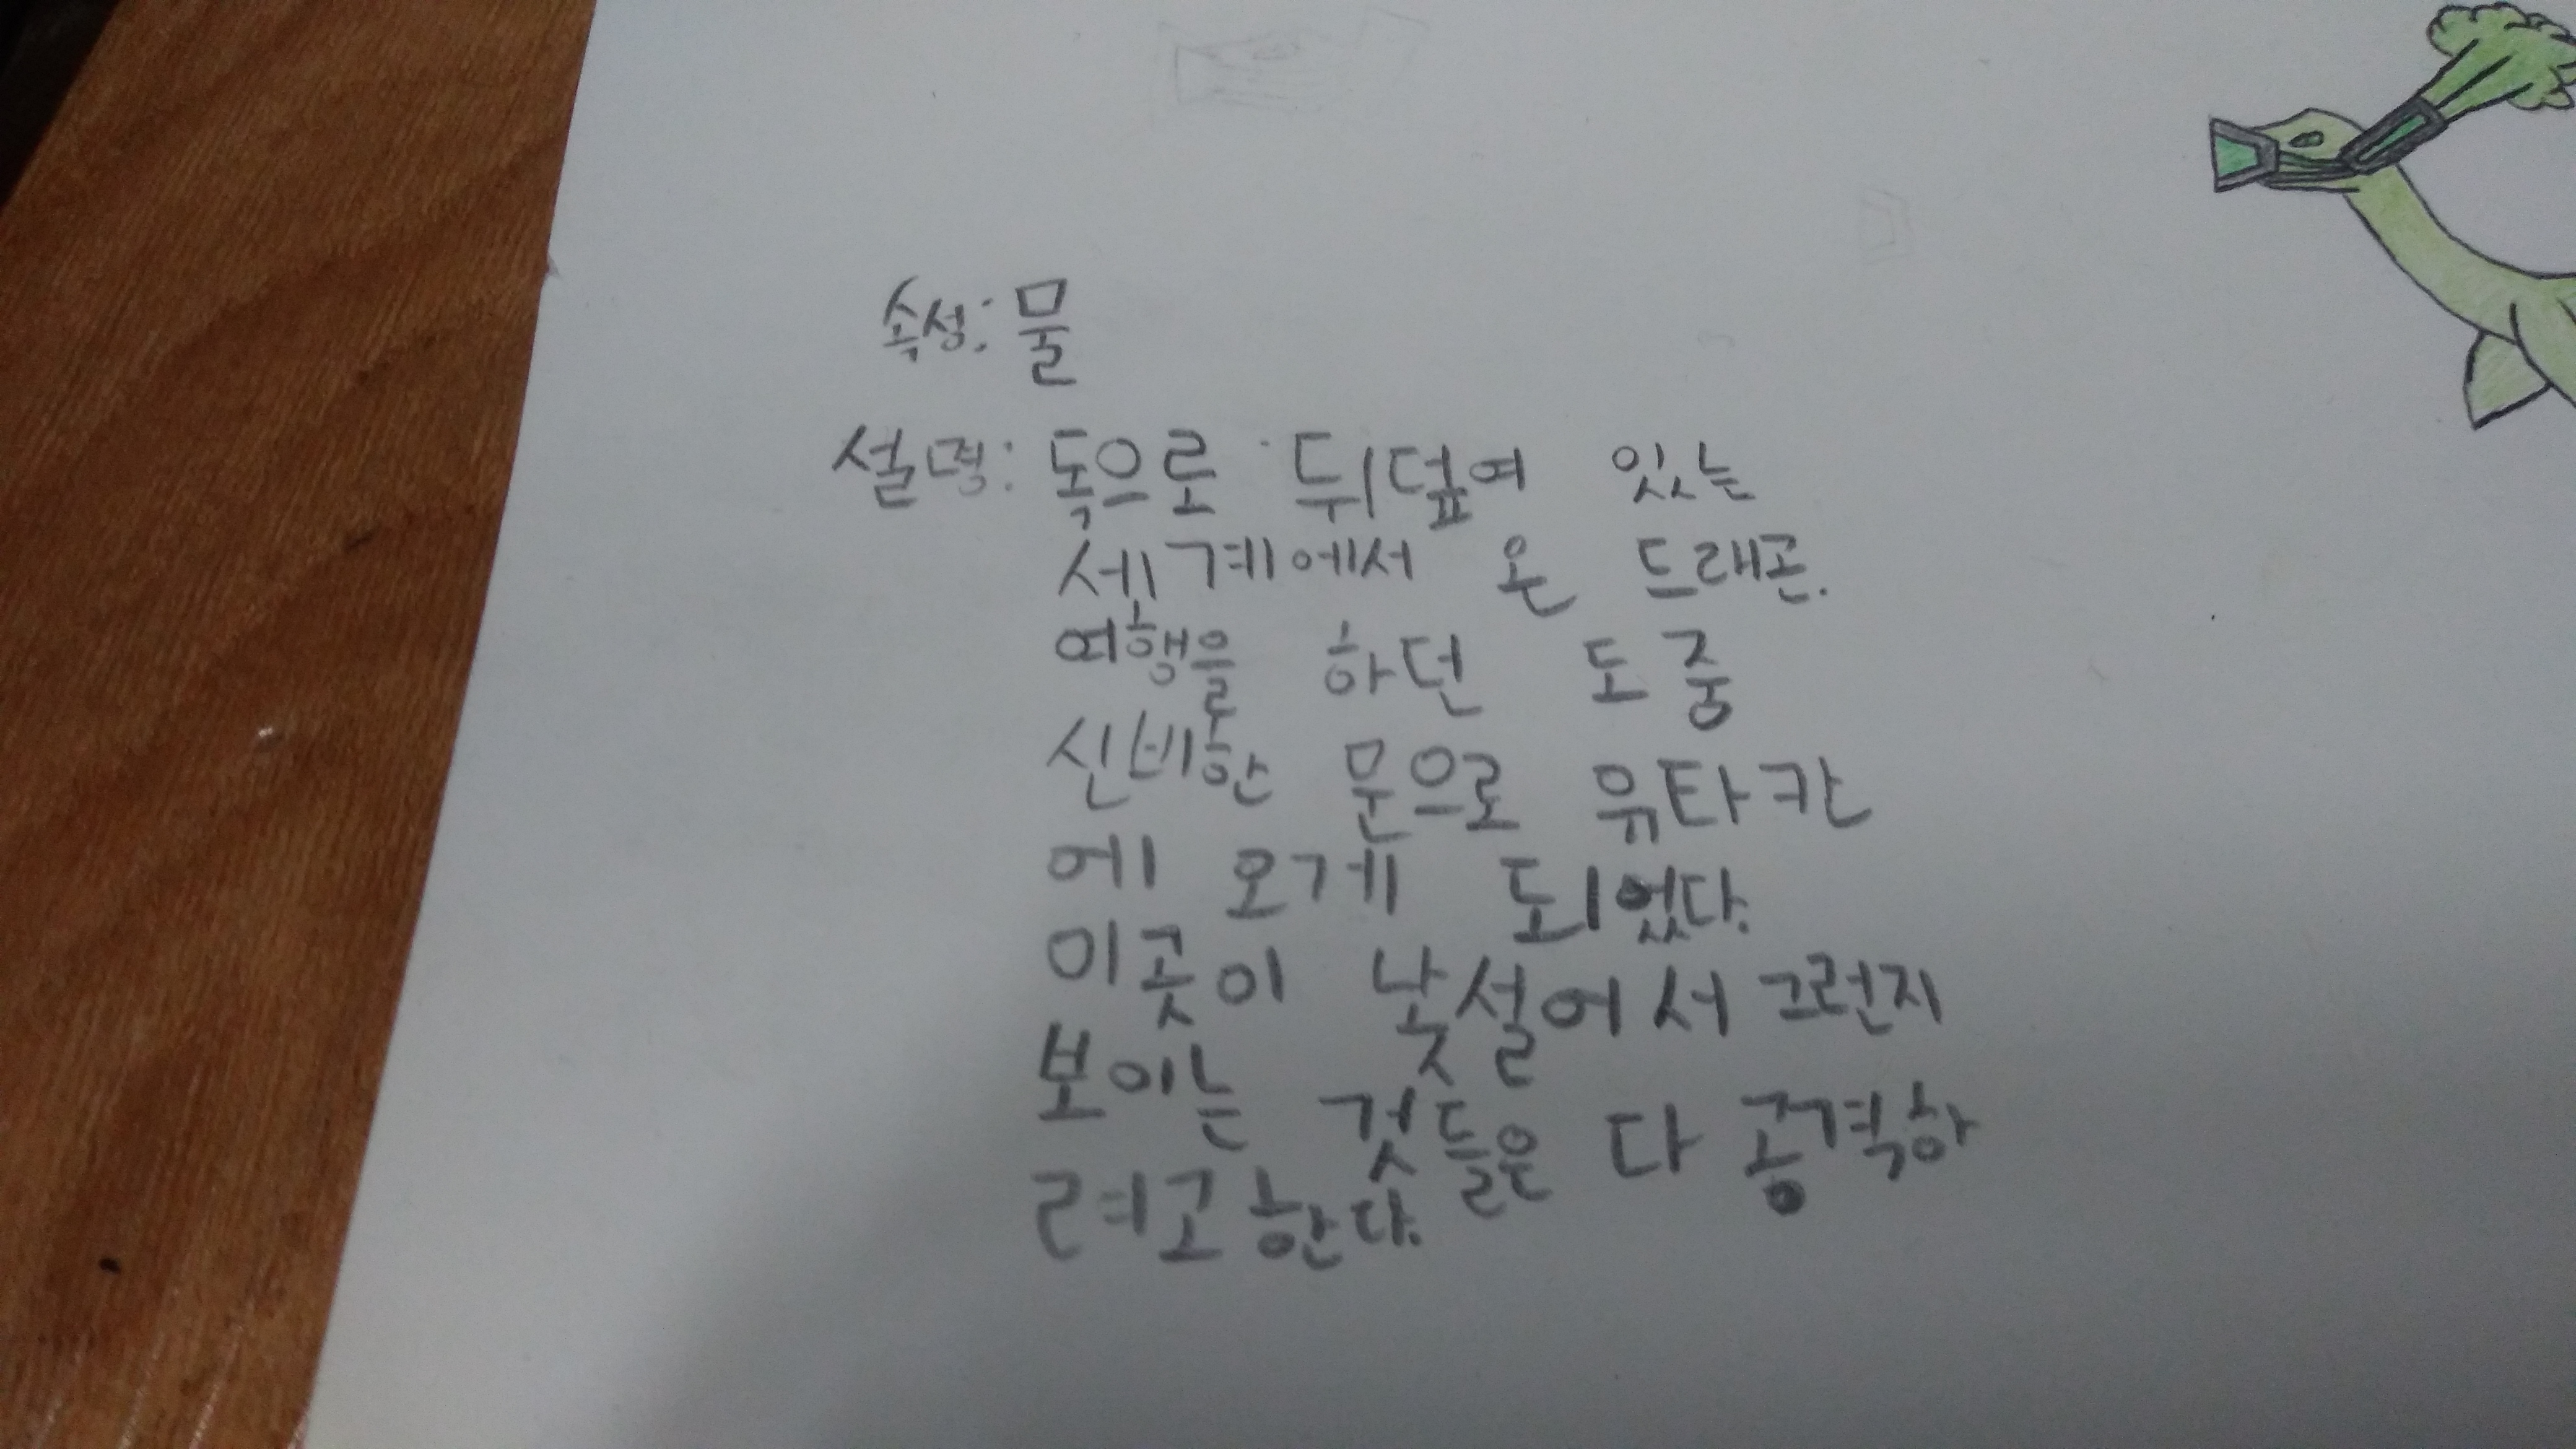 속성: 물
설명: 독으로 뒤덮여 있는
세계에서 온 드래곤.
여행을 하던 도중
신비한 문으로 유타칸
에 오게 되었다.
이곳이 낯설어서 그런지
보이는 것들은 다 공격하
려고 한다.